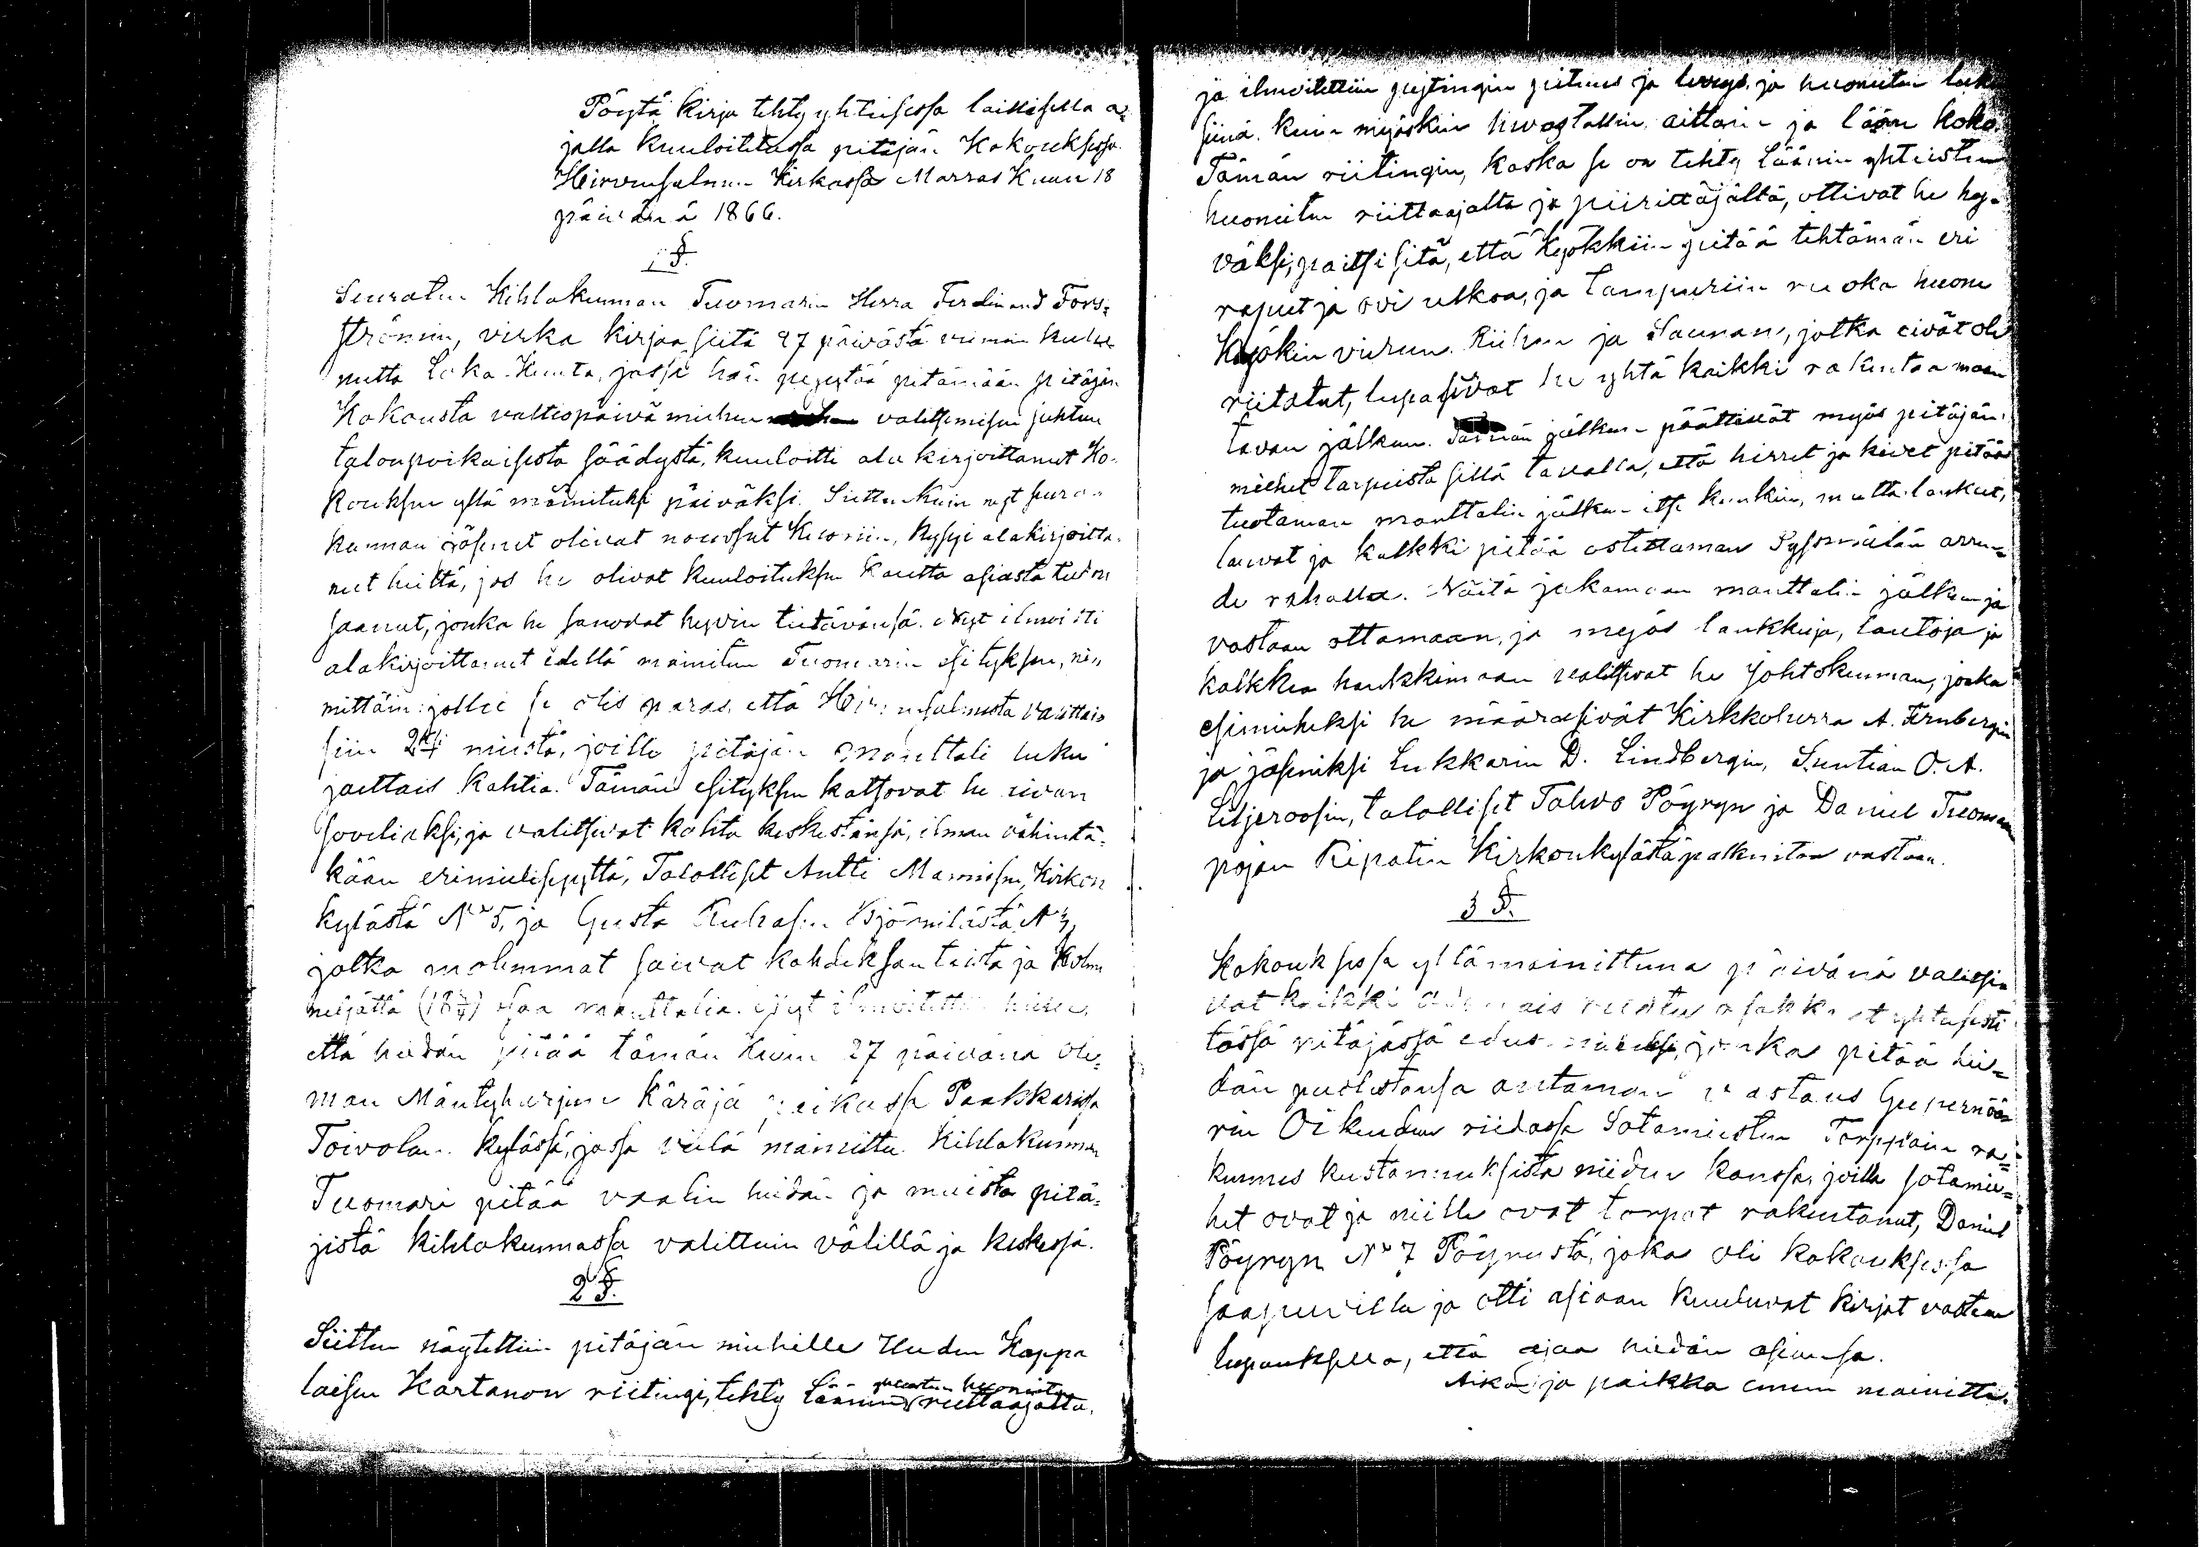 Pöytä kirja tehty yhteisessä laillisella a-
jalla kuuloitetussa pitäjän Kokouksessa
Hirvensalmen Kirkossa Marras Kuun 18
päivänä 1866.
1 §.
Seuraten Kihlakunnan Tuomarin Herra Ferdinand Fors-
strömin, virka kirjaa siitä 27 päivästä viimein kulu-
nutta Loka Kuuta, jossa hän pyytää pitämään pitäjän
Kokousta valtiopäivä miehen valitsemisen juhtun
talonpoikaisesta säädystä, kuuloitti ala kirjoittanut Ko-
kouksen yllä mainituksi päiväksi. Siitte kuin nyt seura-
kunnan jäsenet olivat nousseet Kuoriin, kysyi alakirjoitta-
nut heiltä, jos he olivat kuuloituksen kautta asiasta tiedon
saanut, jonka he sanovat hyvin tietävänsä. Nyt ilmoitti
alakirjoittanut edellä mainitun Tuomarin esityksen, ni-
mittäin: jollei se olis paras, että Hirvensalmesta valittais
siin 2si miestä, joille pitäjän manttali luku
jaettais kahtia. Tämän esityksen katsovat he aivan
soveliaksi, ja valitsivat kahta keskestänsä, ilman vähintä-
kään erimielisyyttä, Talolliset Antti Mannisen, Kirkon
kylästä No 5, ja Gusta Ruhasen Björnilästä No 3,
jotka molemmat saivat kahdeksan toista ja Kolme
neljättä (18 3/4) osaa manttalia. Nyt ilmoitettiin heille,
että heidän pitää tämän kuun 27 päivänä ole-
man Mäntyharjun Käräjä paikassa Paakkarissa
Toivolan kylässä, jossa vielä mainittu Kihlakunnan
Tuomari pitää vaalin heidän ja muista pitä-
jistä kihlakunnassa valittuin välillä ja keskessä.
2 §.
Siitten näytettiin pitäjän miehille Uuden Kappa
laisen Kartanon riitingi, tehty Läänin yleisten huoneitten riittaajalta,
ja ilmoitettiin pystingin pituus ja levys, ja huoneiten luku
siinä, kuin myöskin hevostallin, aittain ja lään koko.
Tämän riitingin, koska se on tehty Läänin yhteisten
huoneiten riittaajalta ja piirittäjältä, ottivat he hy-
väksi, paitsi sitä, että Kyökkiin pitää tehtämän eri
raput ja ovi ulkoa, ja tampuriin ruoka huone
Kyökin viereen. Riihen ja Saunan, jotka eivät ole
riitatut, lupasivat he yhtä kaikki rakentaa maan
tavan jälkeen. Tämän jälkeen päättivät myös pitäjän
miehet tarpeista sillä tavalla, että hirret ja kivet pitää
tuotaman manttalin jälkeen itse kunkin, mutta lankut,
lauvat ja kalkki pitää ostettaman Sysmälän arren-
de rahalla. Näitä jakamaan manttalin jälkeen ja
vastaan ottamaan, ja myös lankkuja, lautoja ja
kalkkia hankkimaan valitsivat he johtokunnan, jonka
esimieheksi he määräsivät Kirkkoherra A. Fernbergin
ja jäseniksi Lukkarin D. Lindbergin, Suntian O. A.
Liljeroosin, talolliset Tahvo Pöyryn ja Daniel Tuoman
pojan Ripatin Kirkonkylästä palkintoa vastaan.
3 §.
Kokouksessa yllämainittuna päivänä valitsi-
vat kaikki osakkaat yhteisesti
tässä pitäjässä edusmieheksi, jonka pitää hei-
dän puolestansa antaman vastaus Guvernöö-
rin Oikeuden riidassa Sotamiesten Torppain ra-
kunnes kustannuksista niiden kanssa, joilla sotamie-
het ovat ja niille ovat torpat rakentanut, Daniel
Pöyryn No 7 Pöyrystä, joka oli kokouksessa
saapuvilla ja otti asiaan kuuluvat kirjat vastaan
lupauksella, että ajaa heidän asiansa.
Aika ja paikka ennen mainittu.